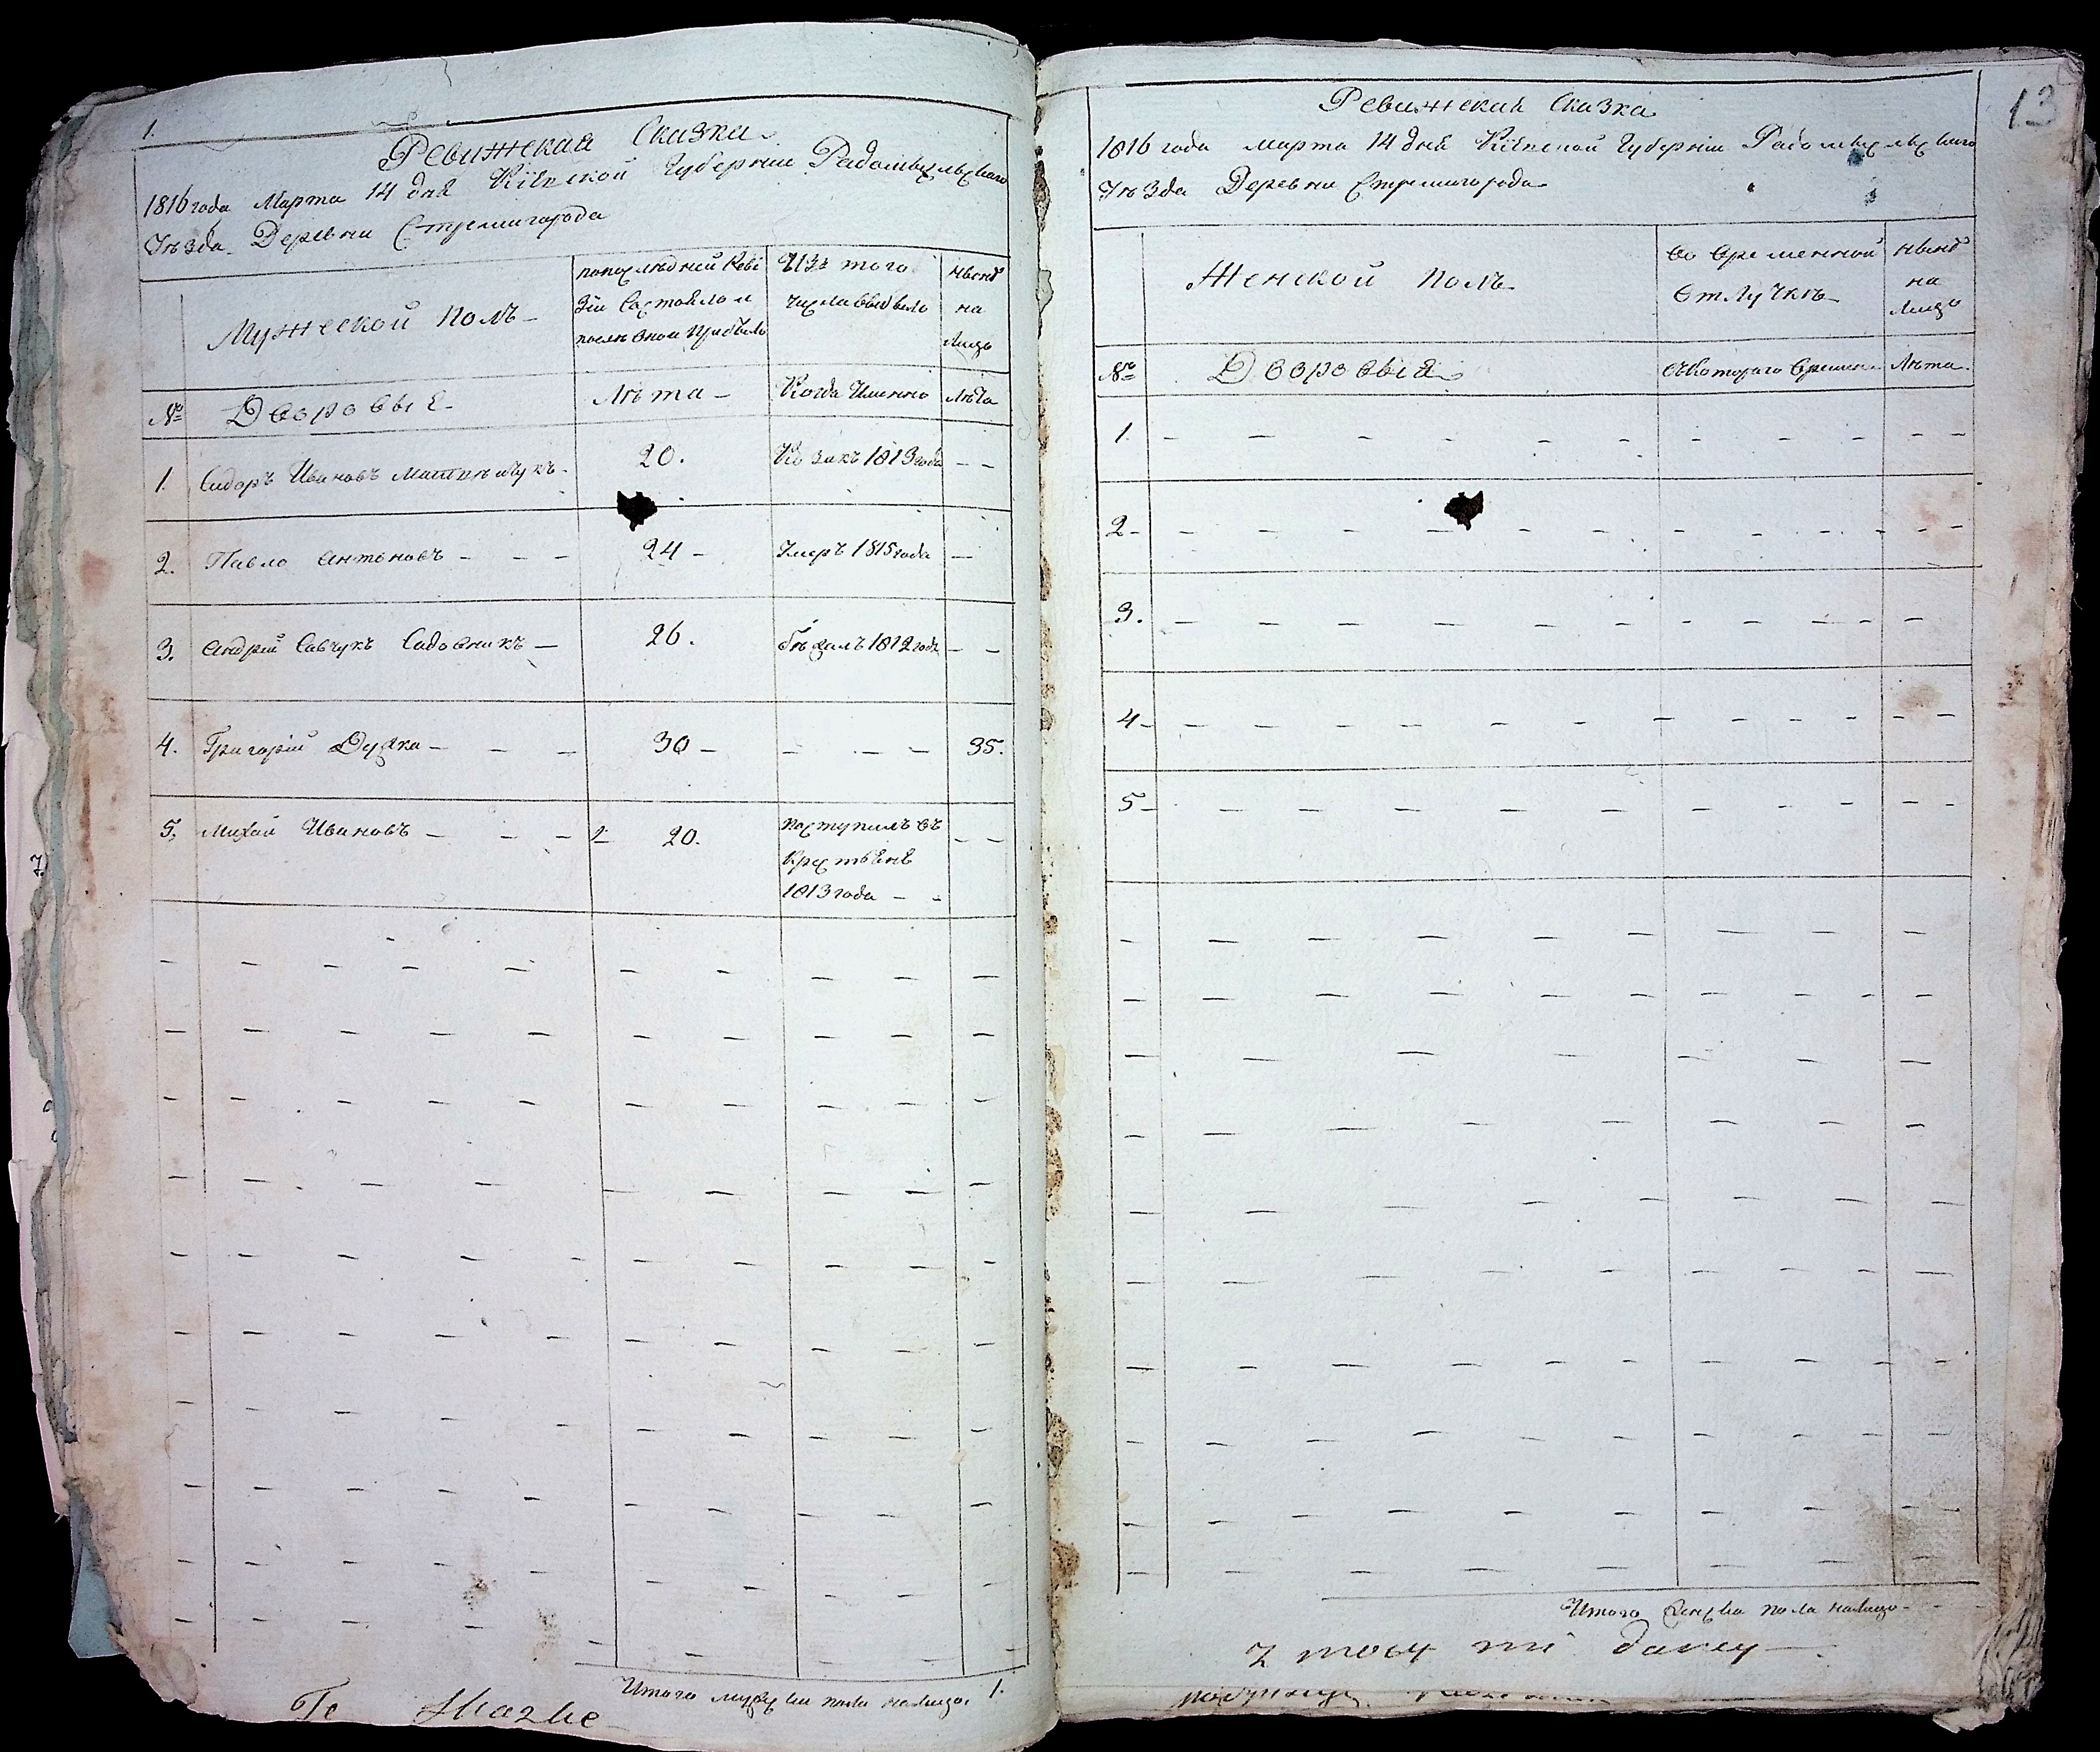 1.
Ревижская Сказка
1816 года Марта 14 дня Кіевской Губерніи Радомысльскаго
Уѣзда Деревни Стремигорода
Мужеской полъ
попослѣдней Реви
зіи Состояло и
послѣ оной прибыло
Изъ того
числа выбыло
нынѣ
на
лицо
№ Дворовые
Лѣта
Когда Именно
лѣта
1. Сидоръ Ивановъ 20. 1813 года - -
2. Павло Антоновъ - - - 24 - Умеръ 1815 года -
3. Андрій Савчукъ Садовникъ - 26. бѣжалъ 1812 года - -
4. Григорій Дудка - - - 30 - - - - 35.
5. Михай Ивановъ - - - 20. поступилъ въ - -
крестьяне
1813 года - -
Итого мужеска пола налицо 1.
Te Skazke
13
Ревижская Сказка
1816 года марта 14 дня Кіевской Губерніи Радомысльскаго
Уѣзда Деревни Стремигорода
Женской полъ
во временной
отлучкѣ
нынѣ
на
лицо
№ Дворовыя
съкотораго времени
Лѣта
1. - - - - - - - - - - -
2 - - - - - - - - - - - -
3. - - - - - - - - - - -
4 - - - - - - - - - - - -
5 - - - - - - - - - - -
Итого женска пола налицо - -
z mocy mi daney